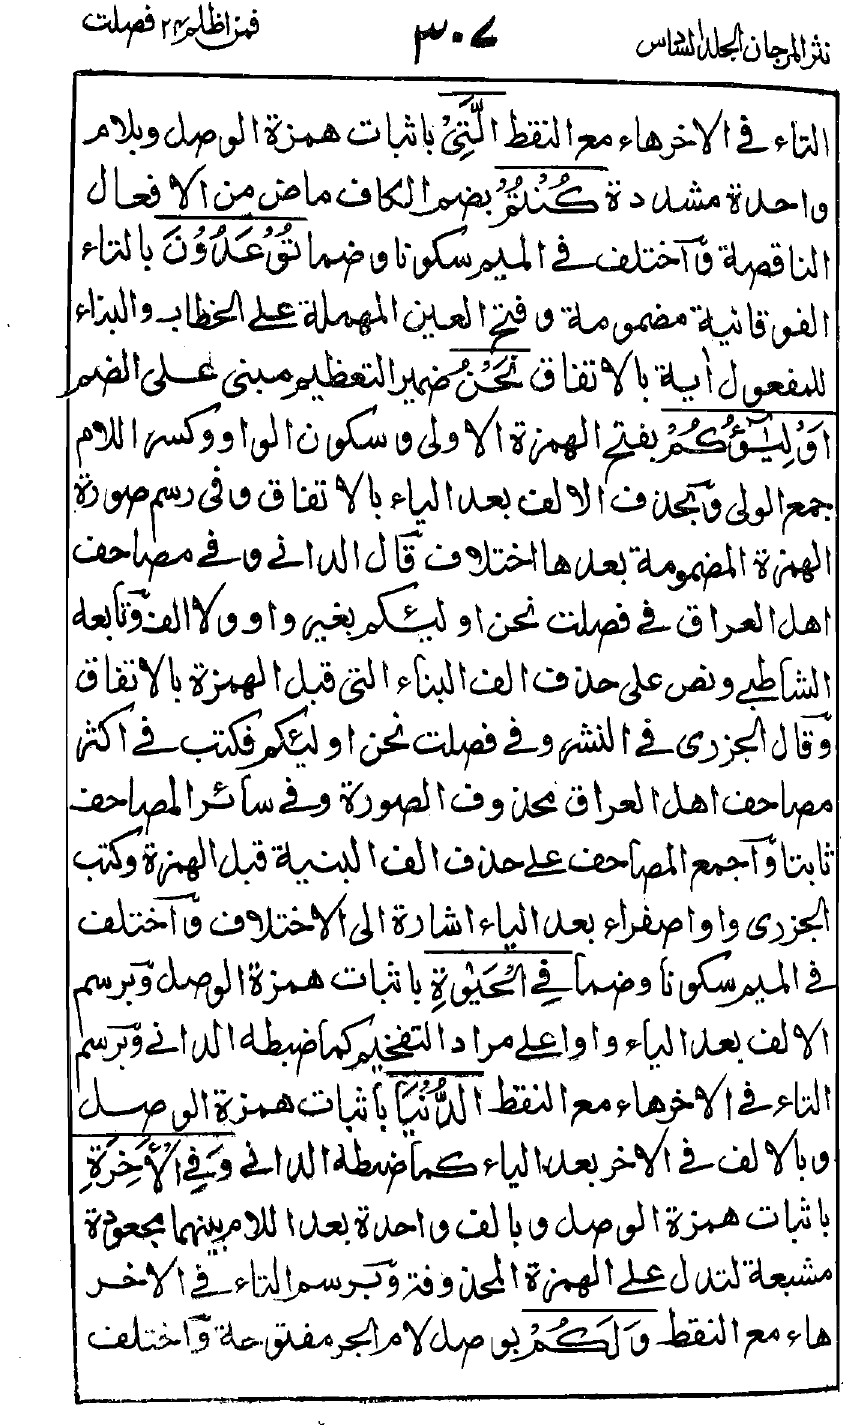 نثر المرجان الجلد السادس ٣٠٧ فمن اظلم ٢٤ فصلت
التاء في الاخر هاء مع النقط الَّتِيْ باثبات همزة الوصل وبلام
واحدة مشددة كُنْتُمْ بضم الكاف ماض من الافعال
الناقصة وآختلف في الميم سكونا وضما تُوْعَدُوْنَ بالتاء
الفوقانية مضمومة وفتح العين المهملة على الخطاب والبناء
للمفعول أية بالاتفاق نَحْنُ ضمير التعظيم مبنى على الضم
اَوْلِيٰٓؤُكُمْ بفتح الهمزة الاولى وسكون الواو وكسر اللام
جمع الولى وبحذف الالف بعد الياء بالاتفاق وفى رسم صورة
الهمزة المضمومة بعدها اختلاف قال الدانى وفي مصاحف
اهل العراق في فصلت نحن اوليئكم بغير واو ولا الف وتابعه
الشاطبي ونص على حذف الف البناء التى قبل الهمزة بالاتفاق
وقال الجزرى في النشر وفي فصلت نحن اوليئكم فكتب في اكثر
مصاحف اهل العراق محذوف الصورة وفي سائر المصاحف
ثابتا وآجمع المصاحف على حذف الف البنية قبل الهمزة وكتب
الجزرى واوا صفراء بعد الياء اشارة الى الاختلاف وآختلف
في الميم سكونا وضما فِي الْحَيٰوةِ باثبات همزة الوصل وبرسم
الالف بعد الياء واوا على مراد التفخيم كما ضبطه الدانى وبرسم
التاء في الاخر هاء مع النقط الدُّنْيَا باثبات همزة الوصل
وبالالف في الاخر بعد الياء كما ضبطه الدانى وَفِي الْاٰخِرَةِ
باثبات همزة الوصل وبالف واحدة بعد اللام بينهما مجعودة
مشبعة لتدل على الهمزة المحذوفة وبرسم التاء في الاخر
هاء مع النقط وَلَكُمْ بوصل لام الجر مفتوحة وآختلف